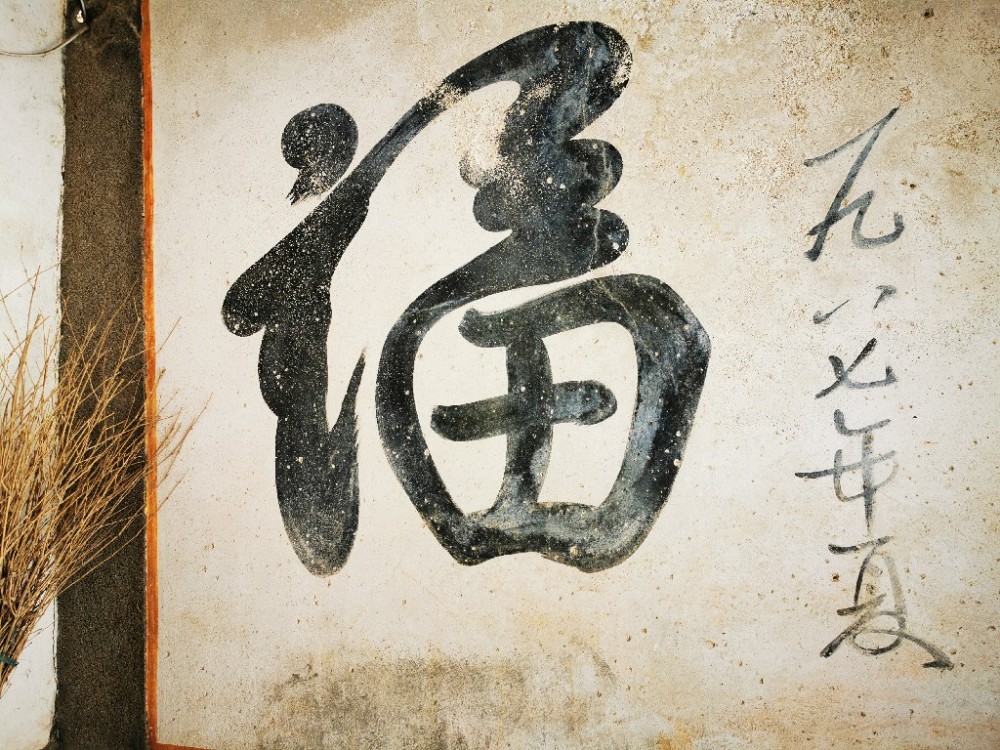 福
一九八七年夏